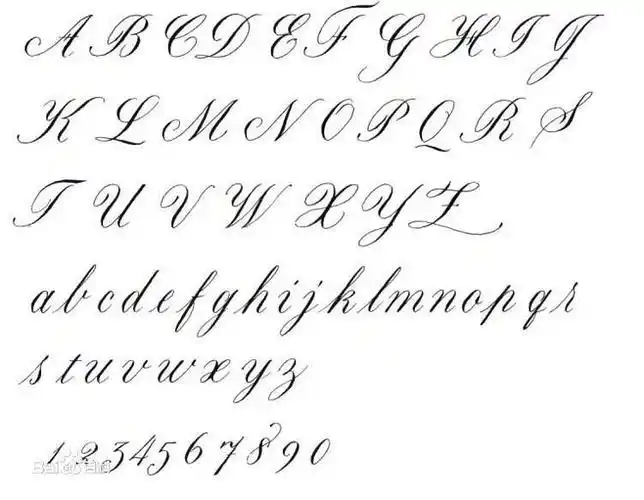 A B C D E F G H I J
K L M N O P Q R S
T U V W X Y Z
a b c d e f g h i j k l m n o p q r
s t u v w x y z
1 2 3 4 5 6 7 8 9 0
Bai百科